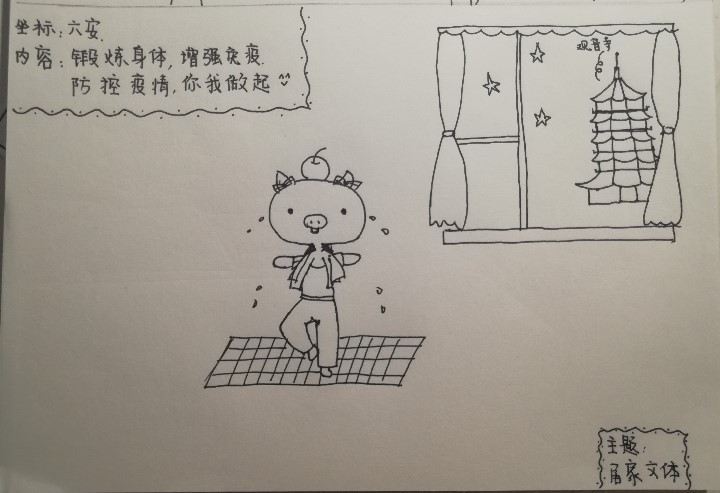 坐标：六安.
内容：锻炼身体，增强免疫.
防控疫情，你我做起
观音寺
主题：
居家文体